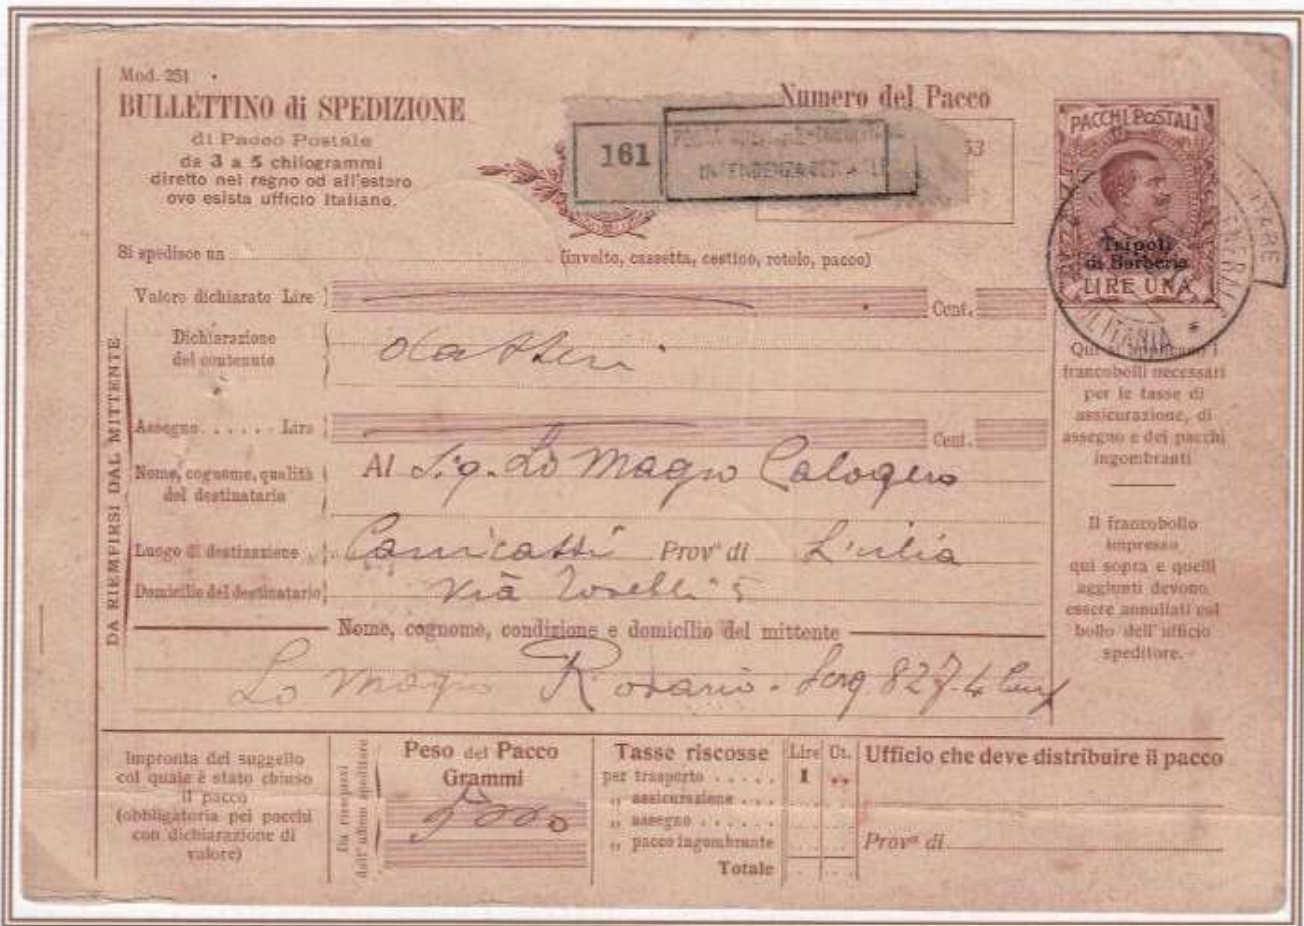 Mod. 251
BULLETTINO di SPEDIZIONE
di Pacco Postale
da 3 a 5 chilogrammi
diretto nel regno od all'estero
ove esista ufficio Italiano.
Numero del Pacco
161
INTENDENZA
53
PACCHI POSTALI
Tripoli
di Barberia
LIRE UNA
Si spedisce un (involto, cassetta, cestino, rotolo, pacco)
DA RIEMPIRSI DAL MITTENTE
Valore dichiarato Lire Cent.
Dichiarazione
del contenuto
datteri
Assegno...... Lire Cent.
Nome, cognome, qualità
del destinatario
Al Sig. Lo Magro Calogero
Luogo di destinazione Canicattì Provª di
Domicilio del destinatario Via 5
Nome, cognome, condizione e domicilio del mittente
Lo Magro Rosario. 827
francobolli necessari
per le tasse di
assicurazione, di
assegno e dei pacchi
ingombranti
Il francobollo
impresso
qui sopra e quelli
aggiunti devono
essere annullati col
bollo dell'ufficio
speditore.
Impronta del suggello
col quale è stato chiuso
il pacco
(obbligatoria pei pacchi
con dichiarazione di
valore)
Da riempirsi
dall'ufficio speditore
Peso del Pacco
Grammi
5000
Tasse riscosse Lire Ct.
per trasporto ..... 1
„ assicurazione ...
„ assegno ......
„ pacco ingombrante
Totale
Ufficio che deve distribuire il pacco
Provª di